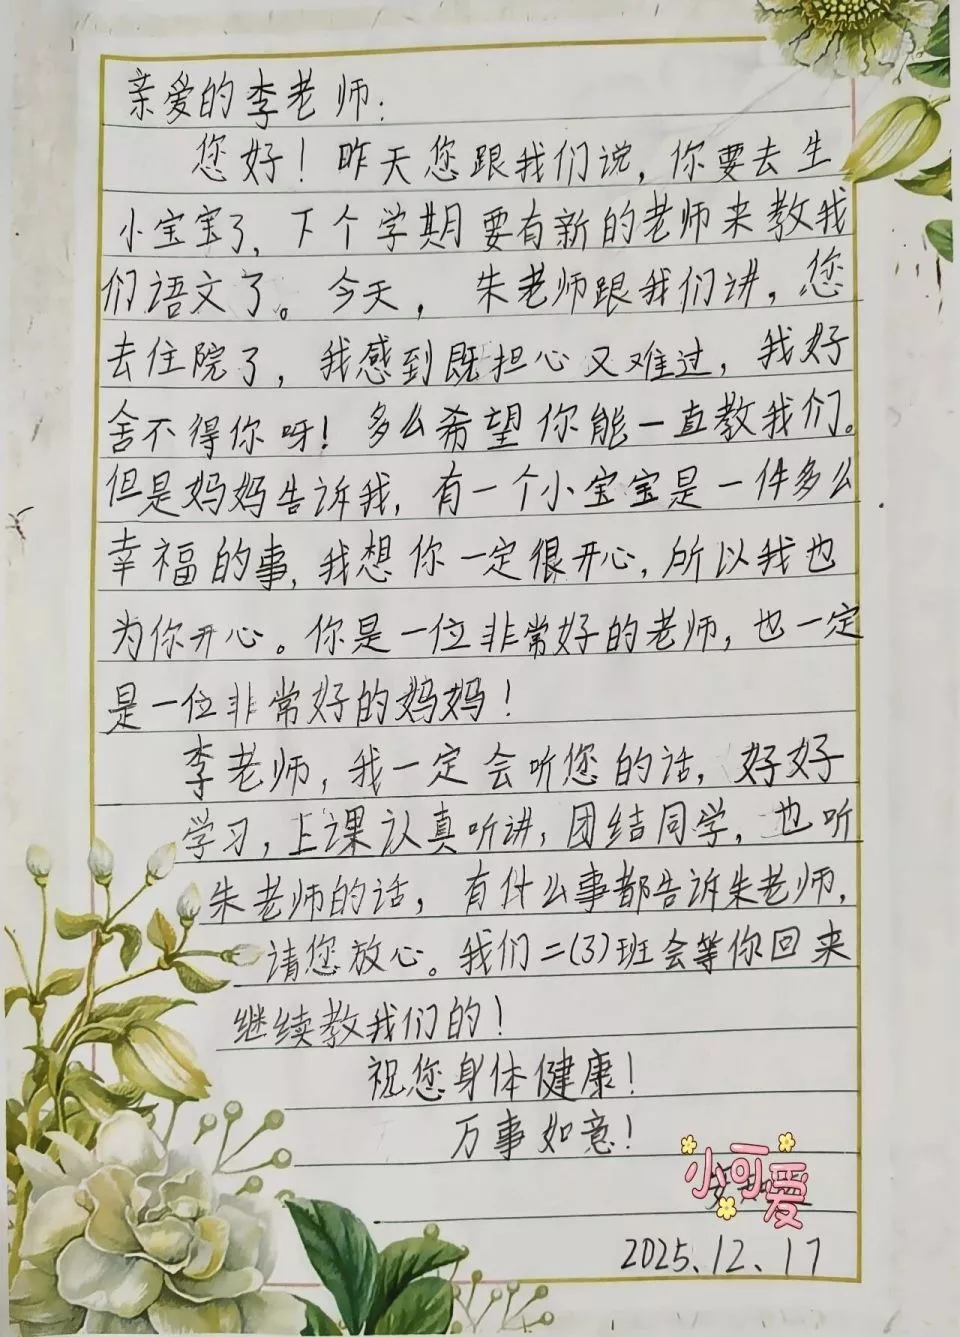 亲爱的李老师:
您好！昨天您跟我们说，你要去生
小宝宝了，下个学期要有新的老师来教我
们语文了。今天，朱老师跟我们讲，您
去住院了，我感到既担心又难过，我好
舍不得你呀！多么希望你能一直教我们。
但是妈妈告诉我，有一个小宝宝是一件多么
幸福的事，我想你一定很开心，所以我也
为你开心。你是一位非常好的老师，也一定
是一位非常好的妈妈！
李老师，我一定会听您的话，好好
学习，上课认真听讲，团结同学，也听
朱老师的话，有什么事都告诉朱老师，
请您放心。我们二(3)班会等你回来
继续教我们的！
祝您身体健康！
万事如意！
小可爱
2025.12.17